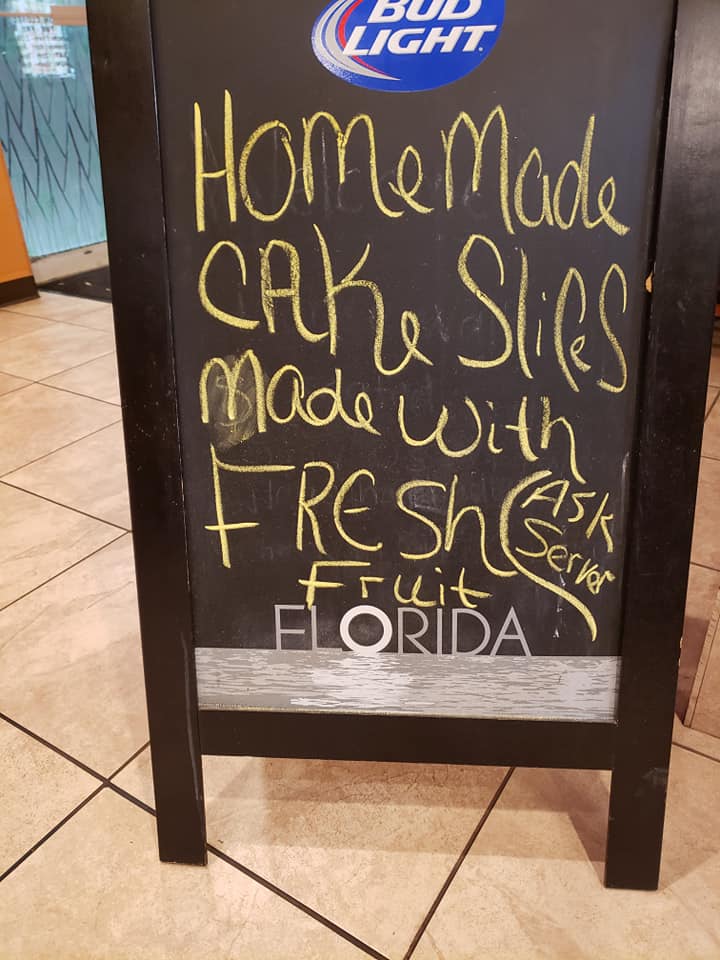 BUD
LIGHT.
HOMeMade
CAKe Slices
Made With
FRESh (Ask
Server
Fruit
FLORIDA